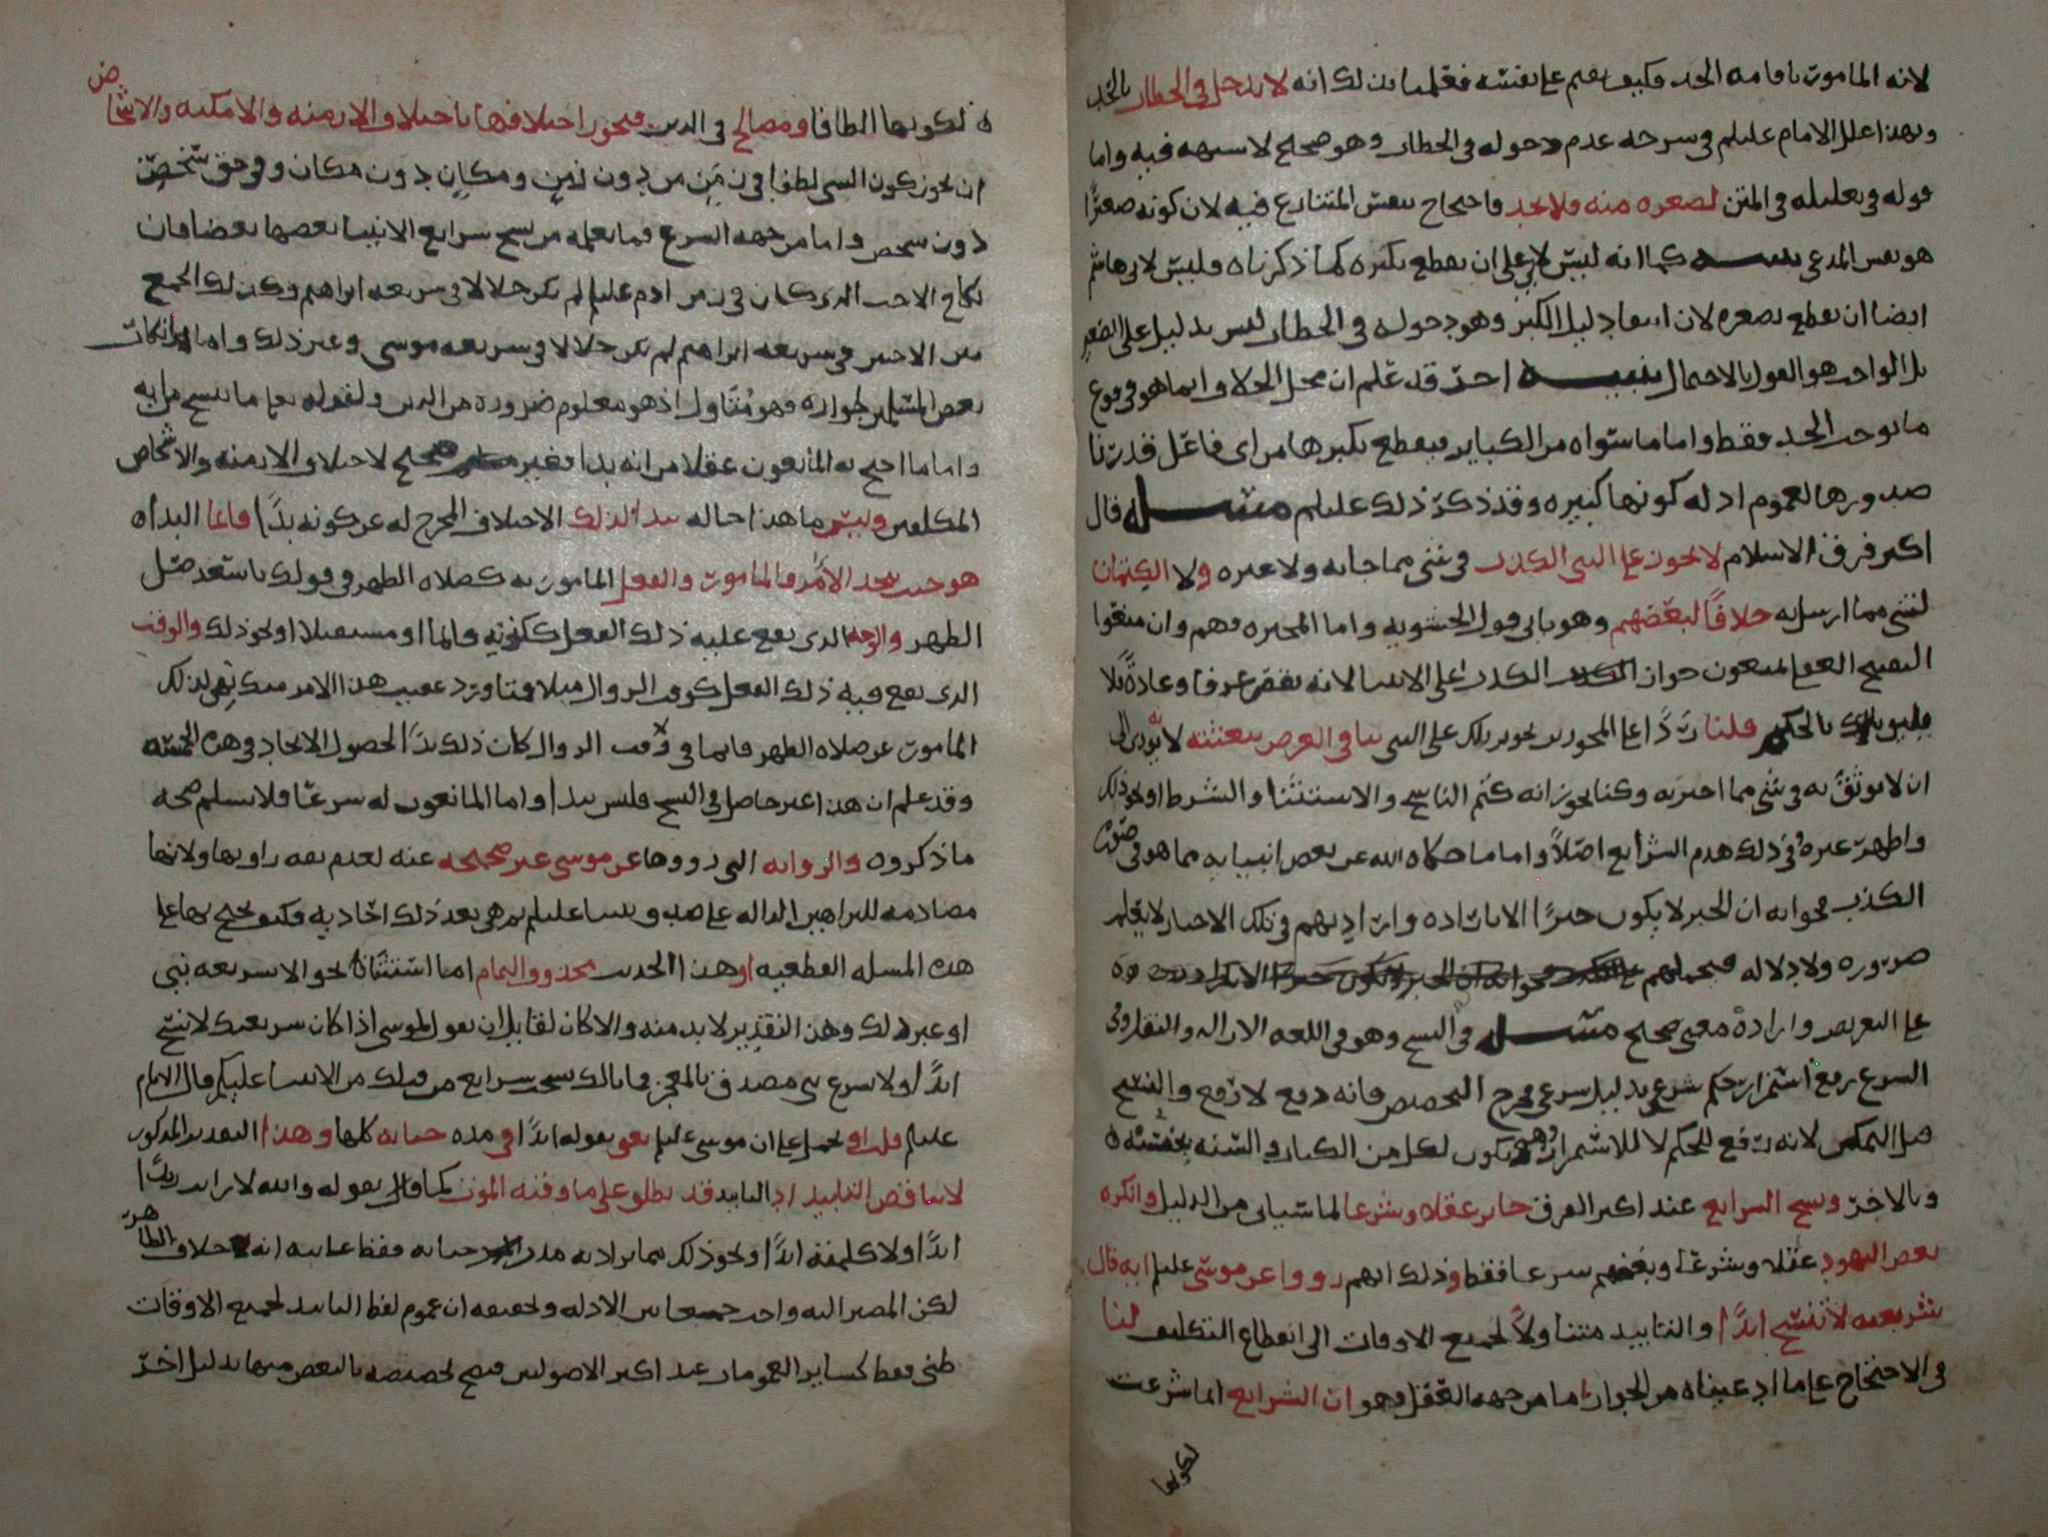 لانه المامور باقامه الحد فكيف يقيم على نفسه فعلمنا بذلك انه لا يدخل في الخطاب بالحد
وبهذا علل الامام عليلم في شرحه عدم دخوله في الخطاب وهو صحيح لا شبهه فيه واما
قوله في تعليله في المتن لصغره منه فلا يحد فاحتجاج بنفس المتنازع فيه لان كونه صغيرًا
هو نفس المدعى كما انه ليس لابي علي ان يقطع بكبره كما ذكرناه فليس لابي هاشم
ايضا ان يقطع بصغره لان انتفا دليل الكبر وهو دخوله في الخطاب ليس بدليل على الصغر
بل الواجب هو القول بالاحتمال تنبيه اخر قد علم ان محل الخلاف انما هو في وقوع
ما يوجب الحد فقط واما ما سواه من الكباير فيقطع بكبرها من اي فاعل قدرنا
صدورها لعموم ادله كونها كبيره وقد ذكر ذلك عليلم مسله قال
اكثر فرق الاسلام لا يجوز على النبي الكذب في شي مما جا به ولا غيره ولا الكتمان
لشي مما ارسل به خلافًا لبعضهم وهو ياتي قول الحشويه واما المجبره فهم وان منعوا
التقبيح العقلي يمنعون جواز الكذب على الانبيا لانه نقص عرفا وعادةً فلا
يليق بالحكيم قلنا ردًا على المجوزين تجويز ذلك على النبي ينافي الغرض ببعثته لانه يودي الى
ان لا يوثق به في شي مما اخبر به وكنا نجوز انه كتم الناسخ والاستثنا والشرط او نحو ذلك
واظهر غيره وفي ذلك هدم الشرايع اصلاً واما ما حكاه الله عن بعض انبيايه مما هو في صورة
الكذب فجوابه ان الخبر لا يكون خبرًا الا بارادة وارادتهم في تلك الاخبار لا يعلم
ضروره ولا دلاله فيحملهم
على التعريض وارادة معنى صحيح مسله في النسخ وهو في اللغه الازاله والنقل وفي
الشرع رفع استمرار حكم شرعي بدليل شرعي فيخرج التخصيص فانه دفع لا رفع والنسخ
قبل التمكن لانه رفع للحكم لا للاستمرار وهو يكون لكل من الكتاب والسنه بجنسه
وبالاخر ونسخ الشرايع عند اكثر الفرق جايز عقلا وشرعا لما سياتي من الدليل وانكره
بعض اليهود عقلا وشرعا وبعضهم شرعا فقط وذلك انهم رووا عن موسى عليلم انه قال
شريعته لا تنسخ ابدًا والتابيد متناولاً لجميع الاوقات الى انقطاع التكليف لنا
في الاحتجاج على ما ادعيناه من الجواز اما من جهه العقل وهو ان الشرايع انما شرعت
لكونها
لكونها الطافا ومصالح في الدين فيجوز اختلافها باختلاف الازمنه والامكنه والاشخاص
ان يجوز كون الشي لطفا في زمن من دون زمن ومكان دون مكان وفي حق شخص
دون شخص واما من جهه الشرع فما نعلمه من نسخ شرايع الانبيا بعضها بعضا فان
نكاح الاخت الذي كان في زمن ادم عليلم لم يكن حلالا في شريعه ابراهيم وكذلك الجمع
بين الاختين في شريعه ابراهيم لم يكن حلالا في شريعه موسى وغير ذلك واما انكار
بعض المسلمين لجوازه فهو متاول اذ هو معلوم ضروره من الدين ولقوله تعالى ما ننسخ من ايه
واما ما احتج به المانعون عقلا من انه بدا فغير صحيح لاختلاف الازمنه والاشخاص
المكلفين وليس ما هذا حاله ببدا لذلك الاختلاف المخرج له عن كونه بدًا فاما البداه
هو حيث يتحد الامر والمامور والفعل المامور به كصلاه الظهر في قولك يا سعد صل
الظهر والوجه الذي يقع عليه ذلك الفعل ككونه قايما او مستقبلا او نحو ذلك والوقت
الذي يقع فيه ذلك الفعل كوقت الزوال مثلا فمتا ورد عقيب هذا الامر منك نهي لذلك
المامور عن صلاه الظهر قايما في وقت الزوال كان ذلك بدًا لحصول الاتحاد في هذه الخمسه
وقد علم ان هذا غير حاصل في النسخ فليس ببدا واما المانعون له شرعًا فلا نسلم صحه
ما ذكروه والروايه التي رووها عن موسى غير صحيحه عنه لعدم ثقه راويها ولانها
مصادمه للبراهين الداله على نبوه نبينا عليلم ثم هي بعد ذلك احاديه فكيف يحتج بها على
هذه المسله القطعيه او هذا الحديث محذوف التمام اما استثناءً نحو الا شريعه نبي
او غير ذلك وهذا التقدير لا بد منه والا كان لقايل ان يقول لموسى اذا كان شريعتك لا تنسخ
ابدًا ولا شرع نبي مصدق بالمعجز فما بالك نسخت شرايع من قبلك من الانبيا عليكم قال الامام
عليلم قلت او يحمل على ان موسى عليلم يعني بقوله ابدًا في مده حياته كلها وهذا التقدير المذكور
لا يناقض التابيد اذ التابيد قد يطلق على ما وقته الموت كما قال بقوله والله لا زايد زيدًا
ابدًا ولا كلمته ابدًا ونحو ذلك مما يراد به مدة حياته فقط غايته انه خلاف الظاهر
لكن المصير اليه واجب جمعا بين الادله وتحقيقه ان عموم لفظ التابيد لجميع الاوقات
ظني فقط كساير العمومات عند اكثر الاصوليين فيصح تخصيصه بالبعض منها بدليل اخر